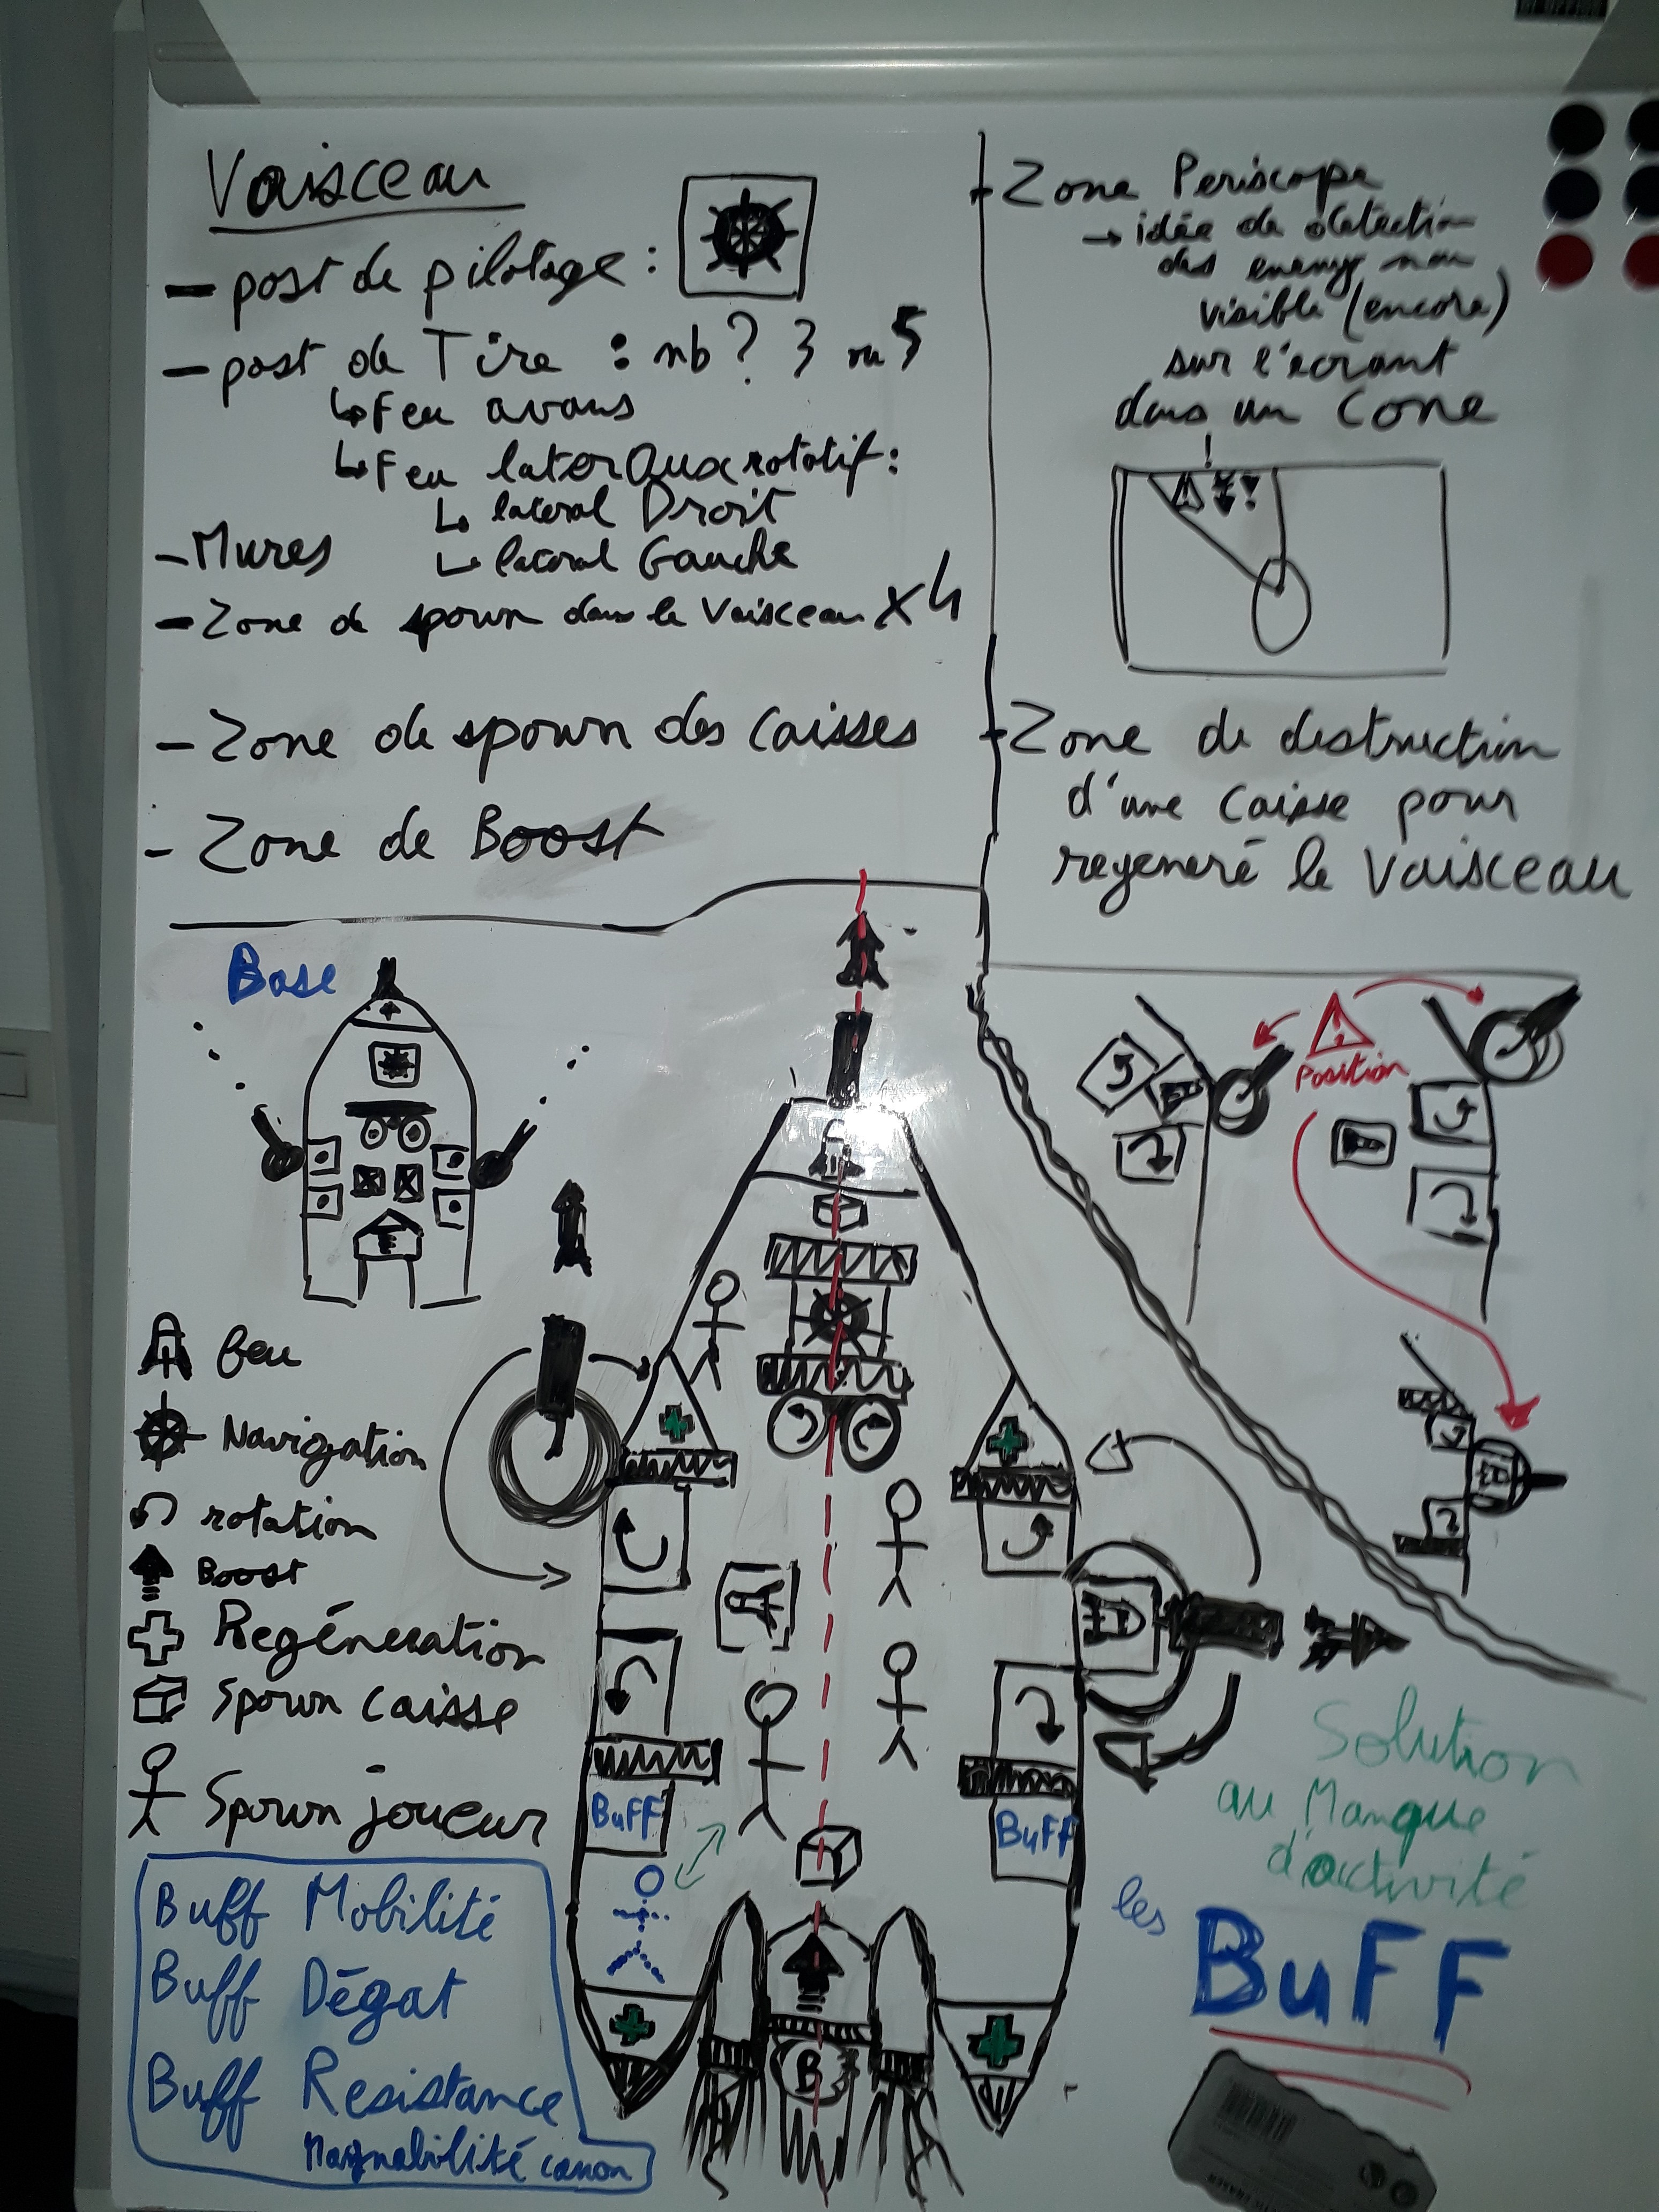 Vaisceau
- post de pilotage :
- post de Tire : nb ? 3 ou 5
↳ Feu avans
↳ Feu lateraux rotatif :
↳ lateral Droit
↳ lateral Gauche
- Mures
- Zone de spawn dans le Vaisceau x 4
- Zone de spawn des Caisses
- Zone de Boost
- Zone Periscope
→ idée de detection
des enemy non
visible (encore)
sur l'écrant
dans un Cone
!
!
- Zone de destruction
d'une Caisse pour
regeneré le Vaisceau
Base
Position
feu
Navigation
rotation
Boost
Regéneration
Spawn Caisse
Spawn joueur
BuFF
BuFF
B
Buff Mobilité
Buff Dégat
Buff Resistance
Solution
au Manque
d'activité
les
BuFF